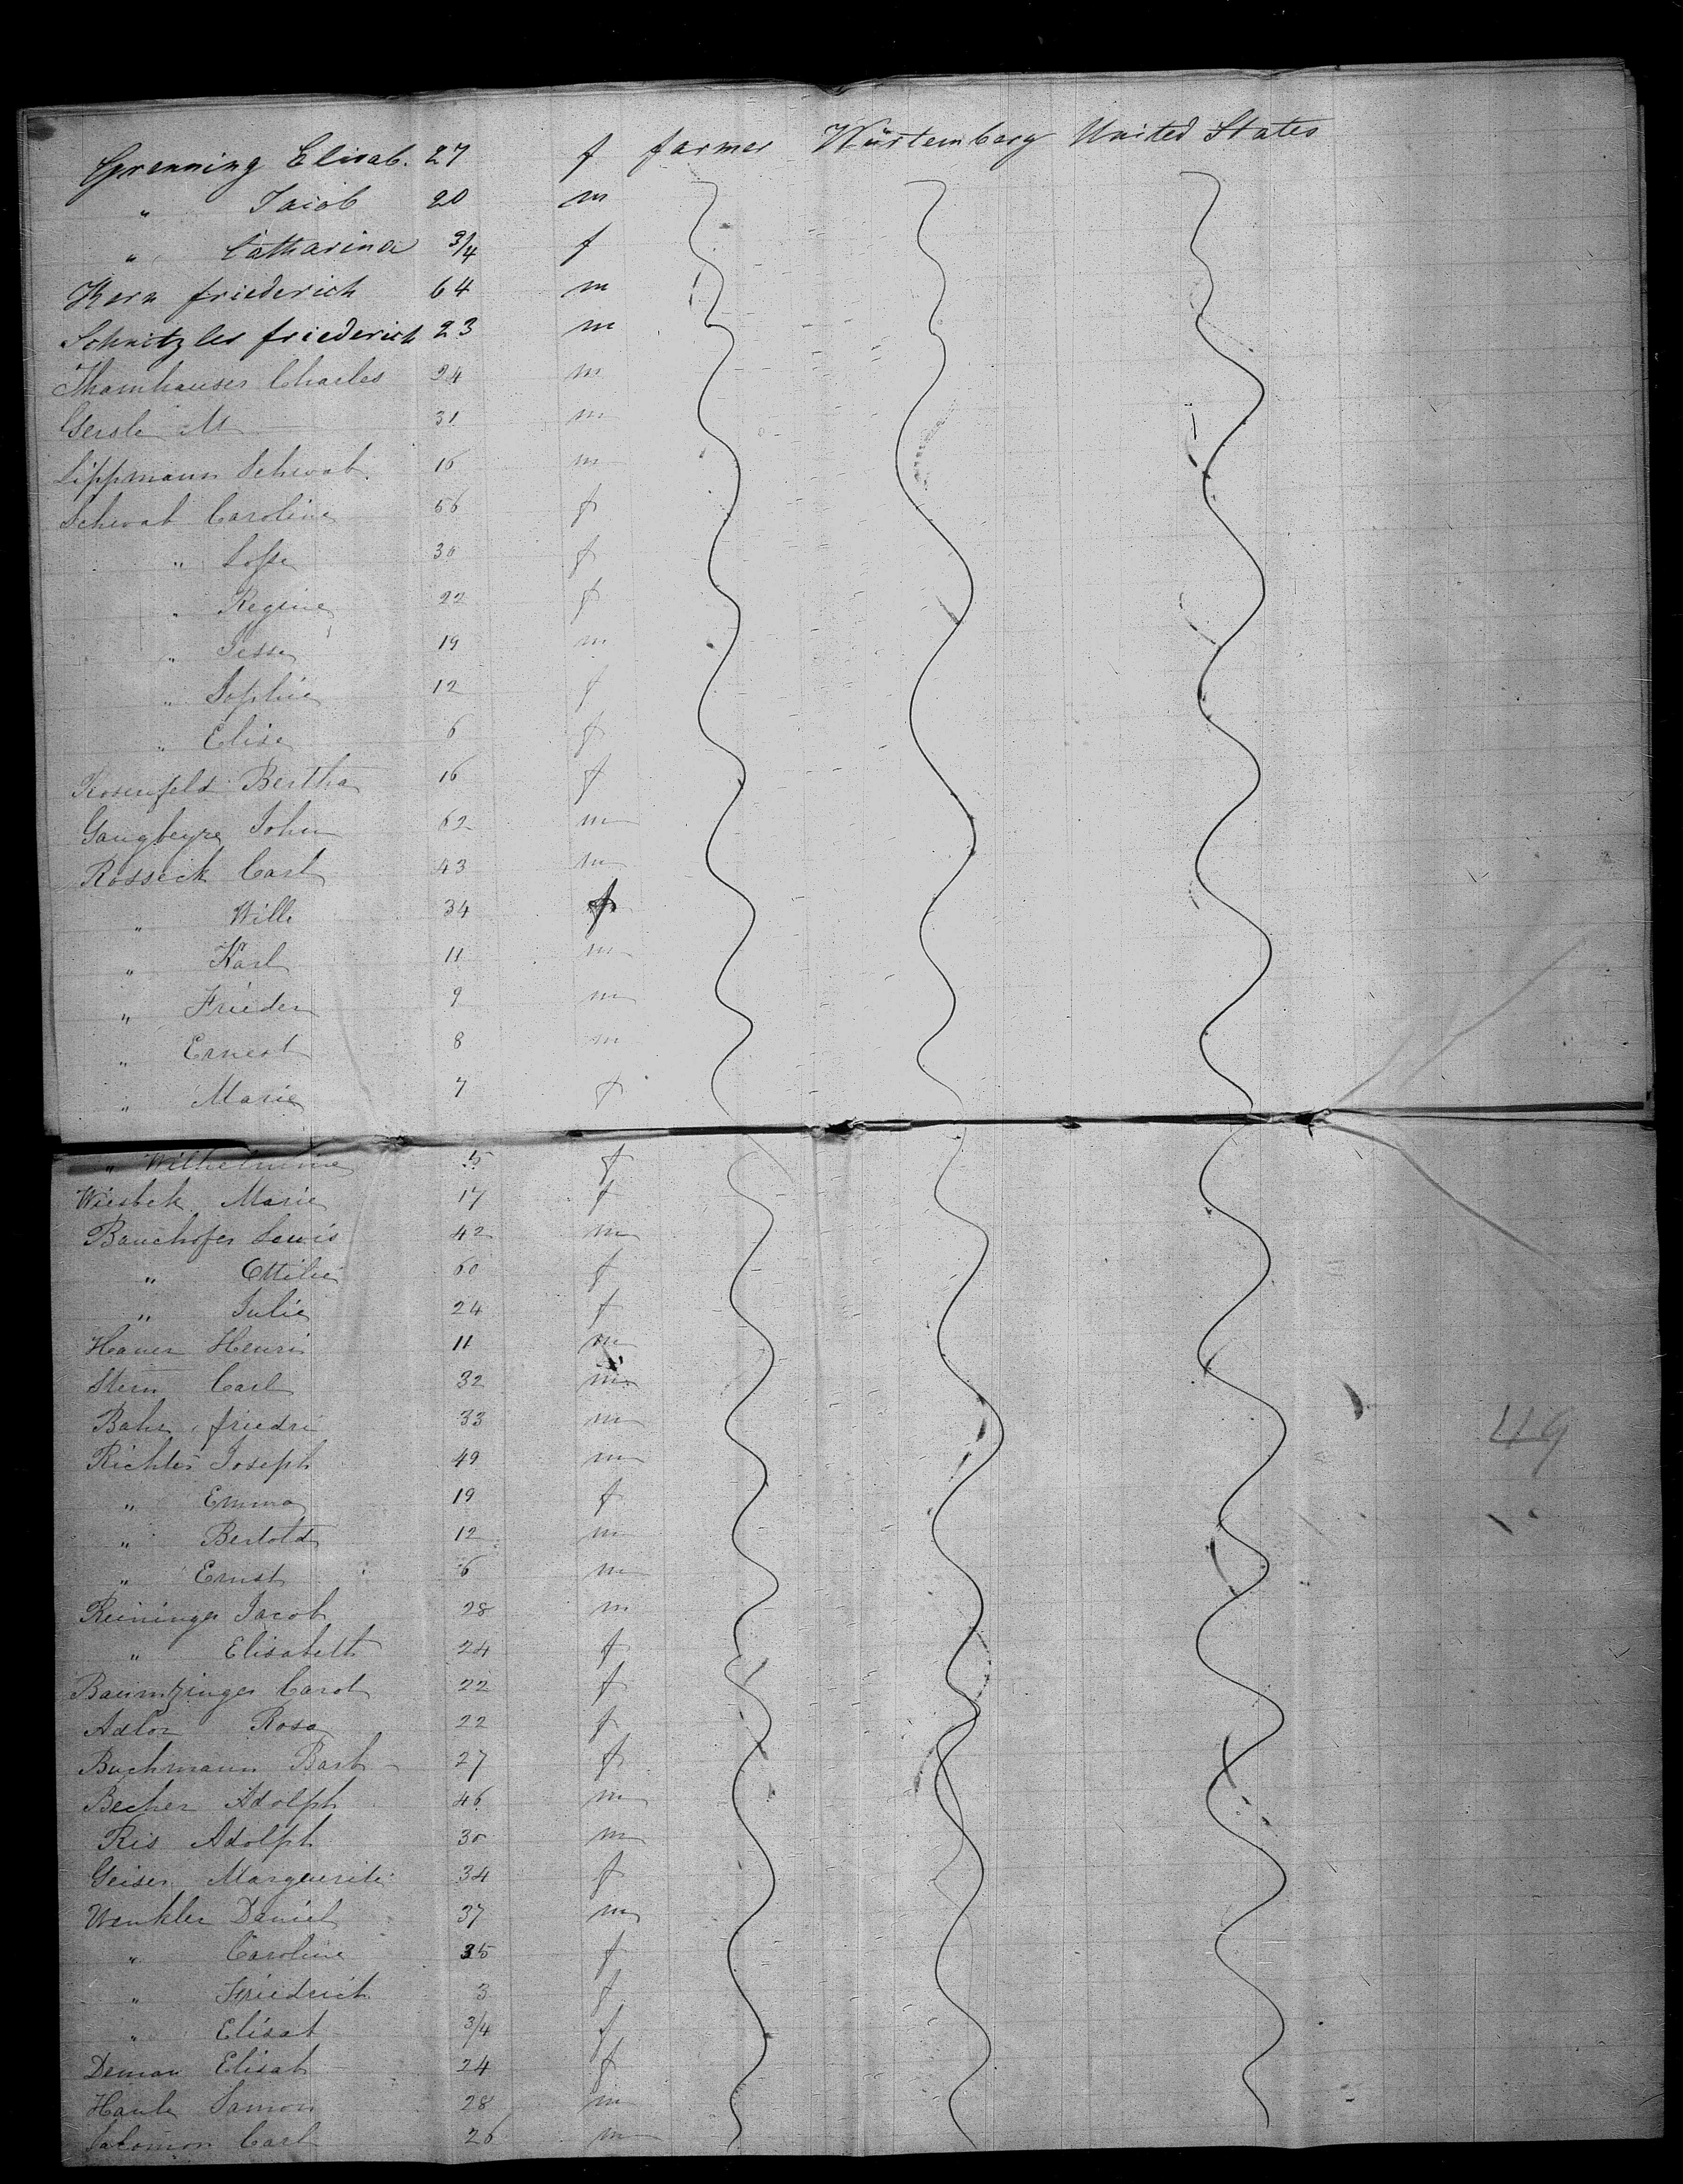 Grenning Elisab. 27 f farmer Würtemberg United States
" Jaiob 20 m
" Catharina 3/4 f
Kern friederich 64 m
Schnitzler friederich 23 m
Thamhauser Charles 24 m
Gerste M 31 m
Lippmann Schwab 16 m
Schwab Caroline 56 f
" Soffe 30 f
" Regine 22 f
" Jesse 19 m
" Sophie 12 f
" Elise 6 f
Rosenfeld Bertha 16 f
Gangbeyre John 62 m
Rosseck Carl 43 m
" Wille 34 f
" Karl 11 m
" Frieder 9 m
" Ernest 8 m
" Marie 7 f
" Wilhelmine 5 f
Wiesbek Marie 17 f
Bauchofer Lewis 42 m
" Ottilie 60 f
" Julie 24 f
Hauer Henri 11 m
Stern Carl 32 m
Bahr friedri 33 m
Richter Joseph 49 m
" Emma 19 f
" Bertold 12 m
" Ernst 6 m
Reininger Jacob 28 m
" Elisabeth 24 f
Baumtzinger Carol 22 f
Adlor Rosa 22 f
Buchmann Barb 27 f
Becher Adolph 46 m
Ris Adolph 30 m
Geiser Marguerite 34 f
Winkler Daniel 37 m
" Caroline 35 f
" Friedrich 3 f
" Elisab 3/4 f
Deman Elisab 24 f
Haule Samon 28 m
Salomon Carl 26 m
49